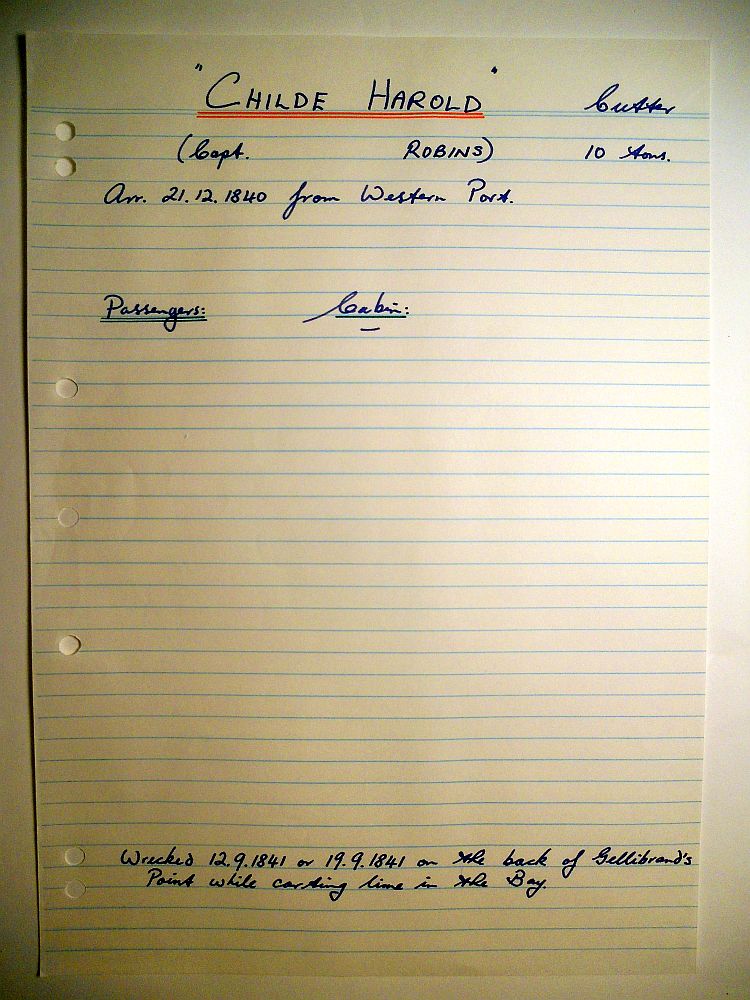 "CHILDE HAROLD" Cutter
(Capt. ROBINS) 10 tons.
Arr. 21.12.1840 from Western Port.
Passengers: Cabin:
—
Wrecked 12.9.1841 or 19.9.1841 on the back of Gellibrand's
Point while carting lime in the Bay.